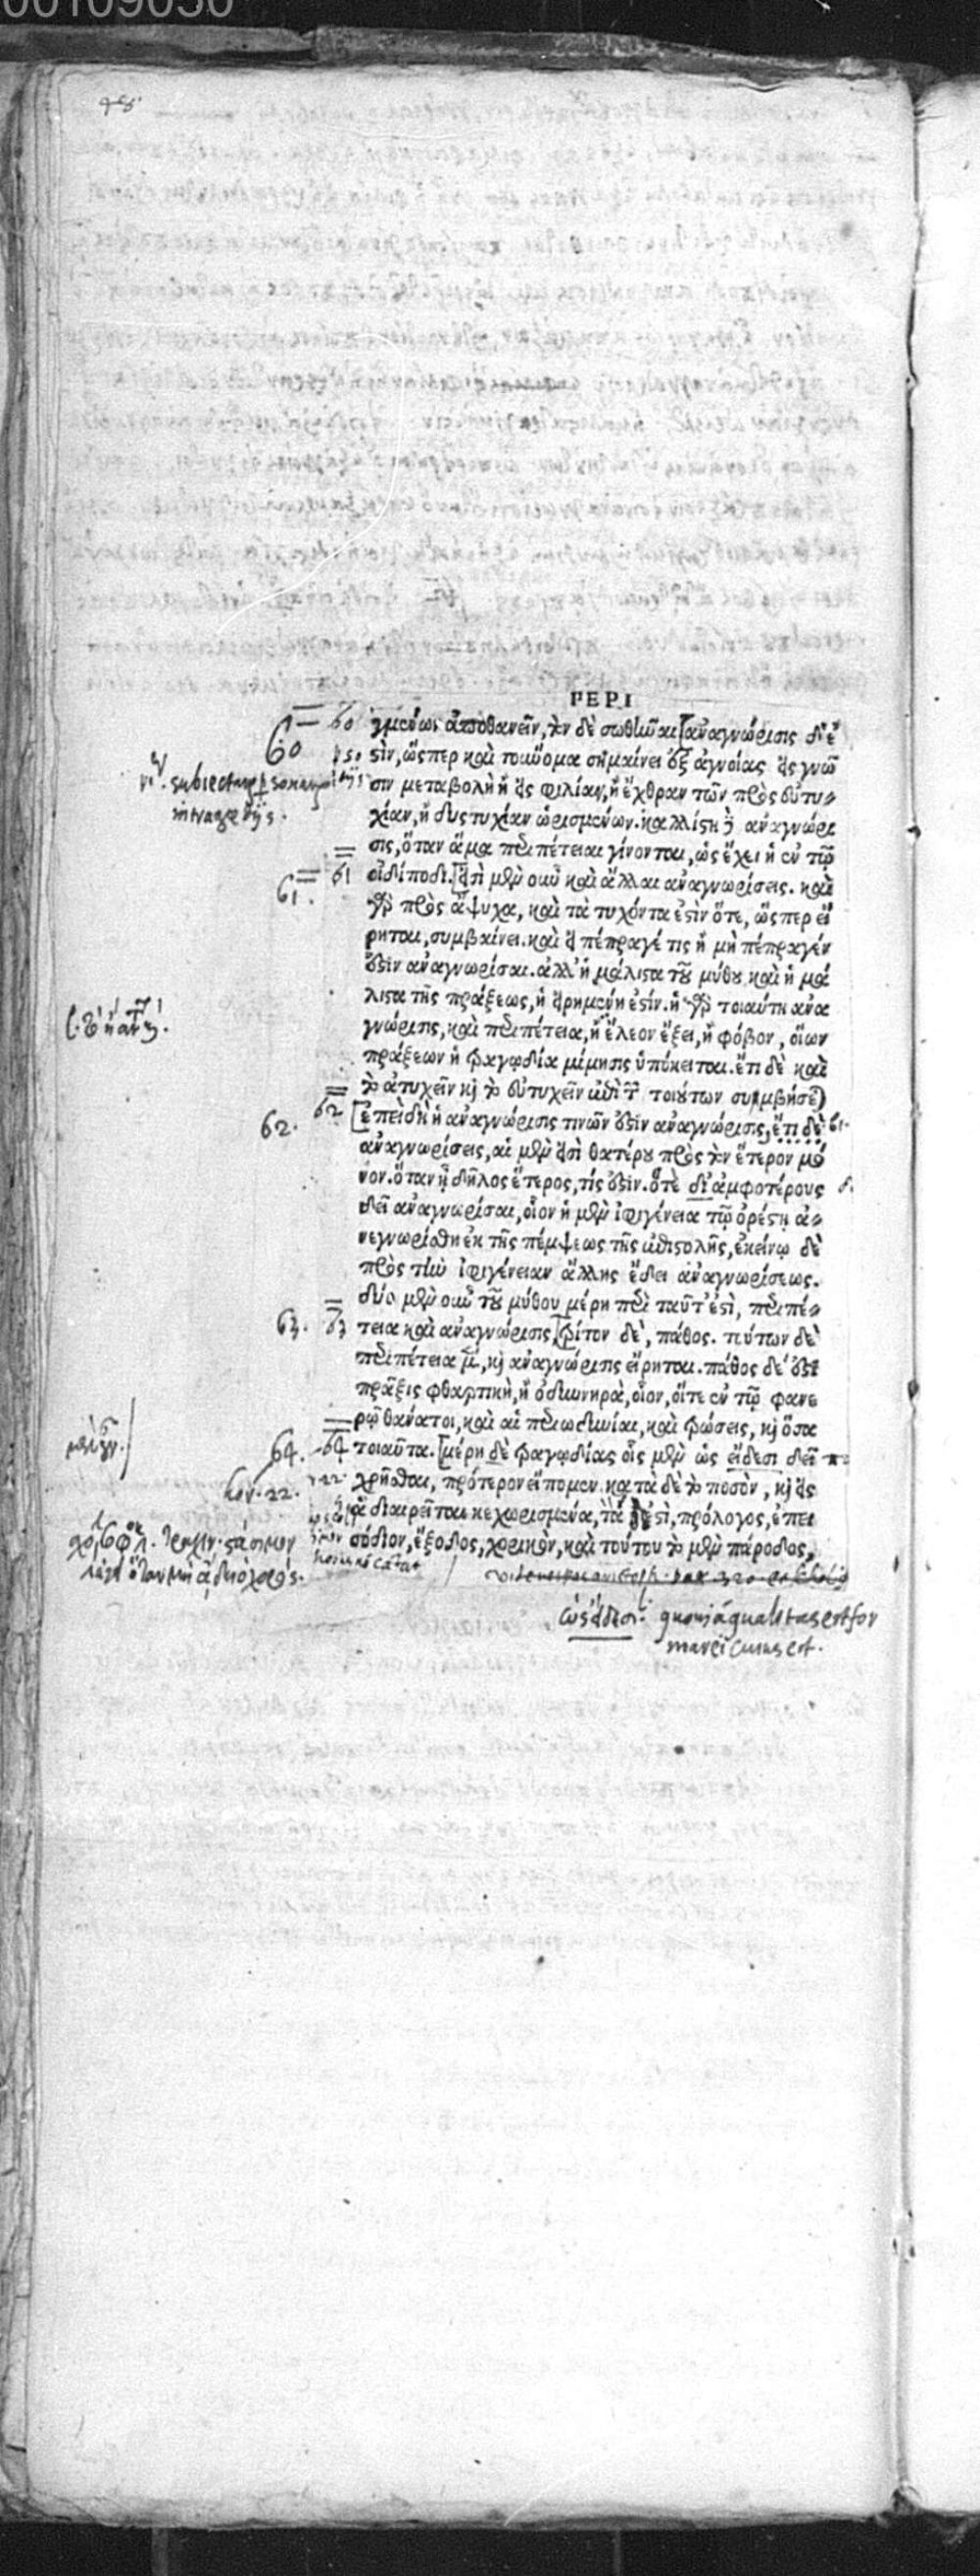 00109050
ΡΕΡΙ
60 γμένων ἀποθανεῖν, τὸν δὲ σωθῆναι [ἀναγνώρισις δέ
60
σὶν, ὥσπερ καὶ τοὔνομα σημαίνει ἐξ ἀγνοίας εἰς γνῶ
subiectarum personarum
σιν μεταβολὴ ἢ εἰς φιλίαν, ἢ ἔχθραν τῶν πρὸς εὐτυ-
in tragedijs.
χίαν, ἢ δυστυχίαν ὡρισμένων. καλλίστη δὲ ἀναγνώρι
σις, ὅταν ἅμα περιπέτειαι γίνονται, ὡς ἔχει ἡ ἐν τῷ
61. 61 οἰδίποδι. [εἰσὶ μὲν οὖν καὶ ἄλλαι ἀναγνωρίσεις. καὶ
γὰρ πρὸς ἄψυχα, καὶ τὰ τυχόντα ἐσὶν ὅτε, ὥσπερ εἴ
ρηται, συμβαίνει. καὶ εἰ πέπραγέ τις ἢ μὴ πέπραγέν
ἐστιν ἀναγνωρίσαι. ἀλλ' ἡ μάλιστα τοῦ μύθου καὶ ἡ μά
λιστα τῆς πράξεως, ἡ εἰρημένη ἐσίν. ἡ γὰρ τοιαύτη ἀνα
γνώρισις, καὶ περιπέτεια, ἢ ἔλεον ἕξει, ἢ φόβον, οἵων
πράξεων ἡ τραγῳδία μίμησις ὑπόκειται. ἔτι δὲ καὶ
τὸ ἀτυχεῖν κὶ τὸ εὐτυχεῖν ἐπὶ τῶν τοιούτων συμβήσε)
62. 62 [ἐπειδὴ ἡ ἀναγνώρισις τινῶν ἐστιν ἀναγνώρισις, ἔτι δὲ 61.
ἀναγνωρίσεις, αἱ μὲν εἰσὶ θατέρου πρὸς τὸν ἕτερον μό
νον. ὅταν ᾖ δῆλος ἕτερος, τίς ἐστιν. ὁτὲ δι' ἀμφοτέρους
δεῖ ἀναγνωρίσαι, οἷον ἡ μὲν ἰφιγένεια τῷ ὀρέστῃ ἀ-
νεγνωρίσθη ἐκ τῆς πέμψεως τῆς ἐπιστολῆς, ἐκείνῳ δὲ
πρὸς τὴν ἰφιγένειαν ἄλλης ἔδει ἀναγνωρίσεως.
δύο μὲν οὖν τοῦ μύθου μέρη περὶ ταῦτ' ἐσὶ, περιπέ-
63. 63 τεια καὶ ἀναγνώρισις [τρίτον δὲ, πάθος. τούτων δὲ
περιπέτεια μὲν, κὶ ἀναγνώρισις εἴρηται. πάθος δέ ἐστι
πρᾶξις φθαρτικὴ, ἢ ὀδυνηρὰ, οἷον, οἵτε ἐν τῷ φανε
ρῷ θάνατοι, καὶ αἱ περιωδυνίαι, καὶ τρώσεις, κὶ ὅσα
64. 64 τοιαῦτα. [μέρη δὲ τραγῳδίας οἷς μὲν ὡς εἴδεσι δεῖ
22. χρῆσθαι, πρότερον εἴπομεν. κατὰ δὲ τὸ ποσὸν, κὶ εἰς
ἃ διαιρεῖται κεχωρισμένα, τὰ δὲ ἐσὶ, πρόλογος, ἐπει
σόδιον, ἔξοδος, χορικὸν, καὶ τούτου τὸ μὲν πάροδος,
ὡς εἴδεσι quoniā qualitas est for
marū cuius est.